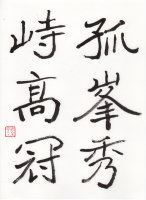 孤峯秀
峙高冠